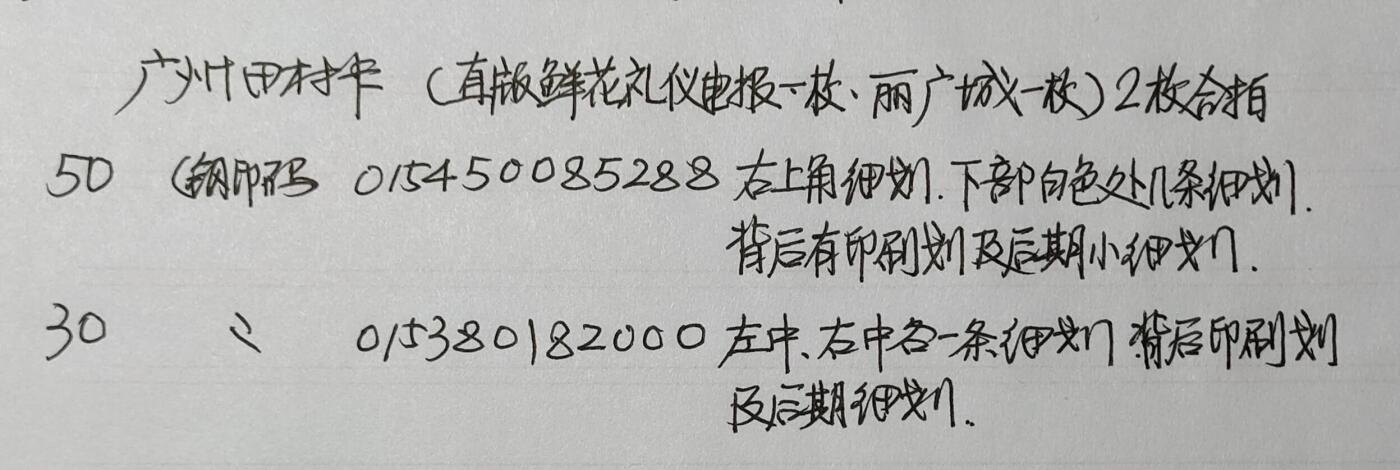 广州田村卡（直版鲜花礼仪电报一枚、丽广城一枚）2枚合拍
50 （钢印码 015450085288 右上角细划.下部白色处几条细划.
背后有印刷划及后期小细划.
30 〃 015380182000 左中、右中各一条细划 背后印刷划
及后期细划.